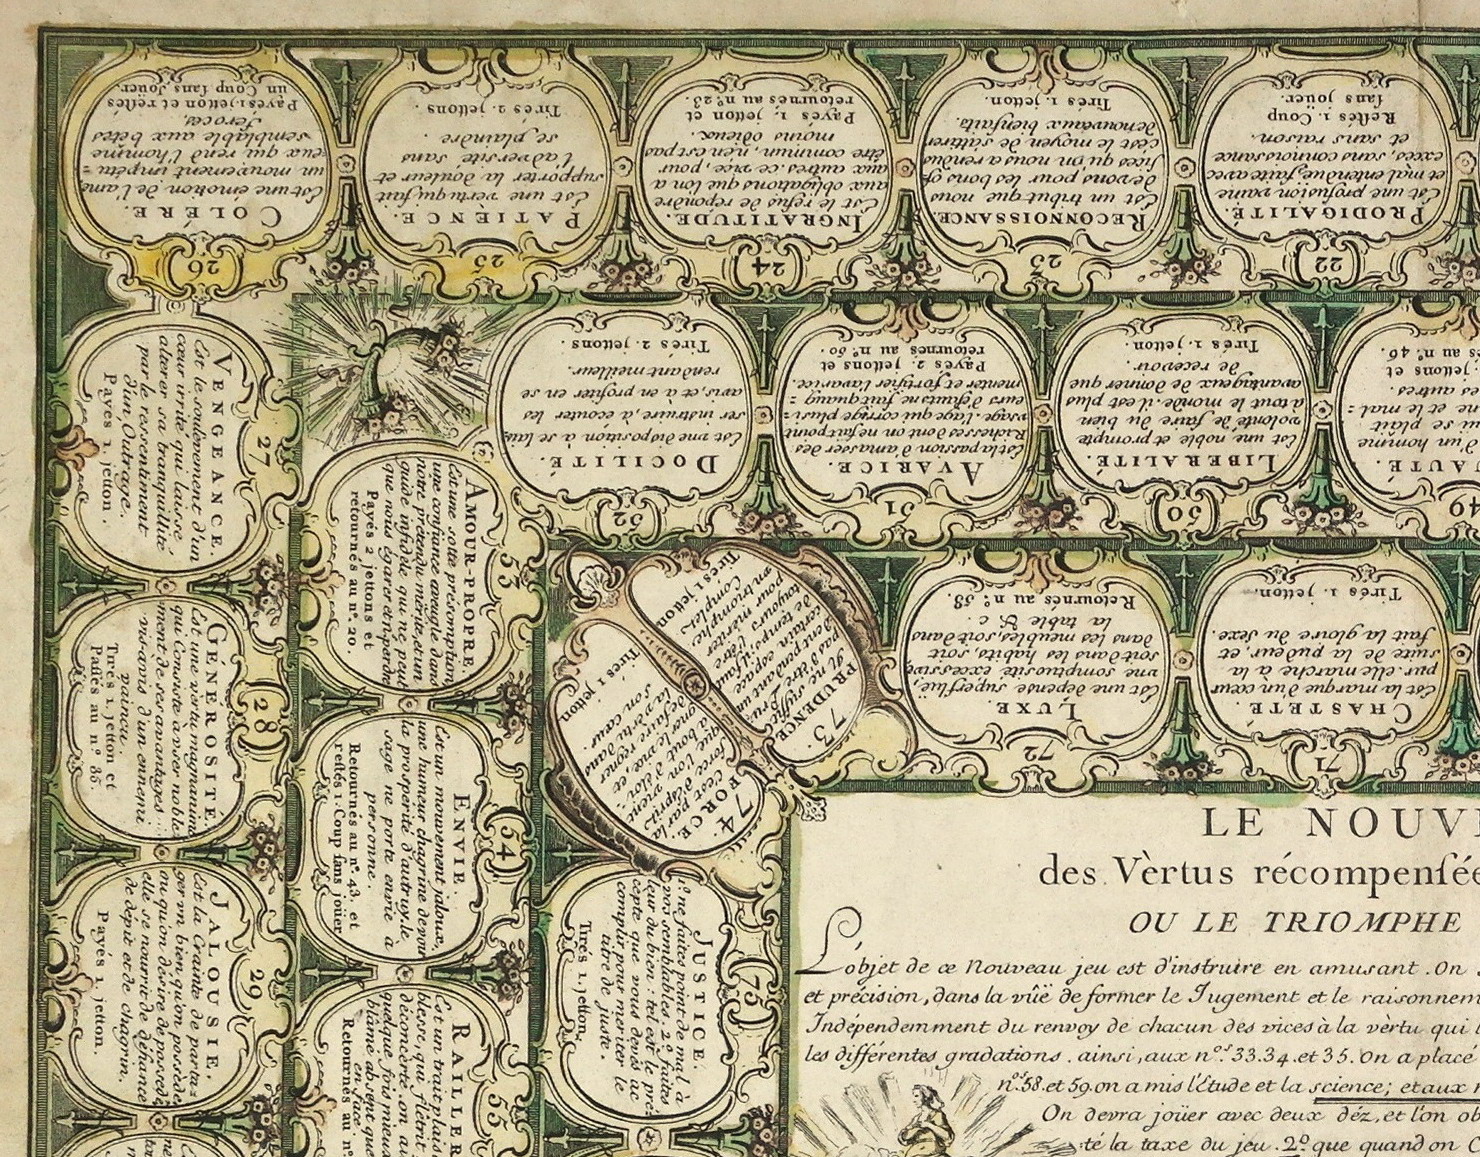 22
PRODIGALITÉ.
Est une profusion vaine
et mal entendue, faite avec
excès, sans connoissance
et sans raison.
Restés 1. Coup
sans joüer.
23
RECONNOISSANCE.
Est un tribut que nous
devons pour les bons of=
fices qu'on nous a rendu
c'est le moyen de s'attirer
de nouveaux bienfaits.
Tirés 1. jetton.
24
INGRATITUDE.
Est le refus de répondre
aux obligations que l'on a
aux autres. ce vice, pour
être commun, n'en est pas
moins odieux.
Payés 1. jetton et
retournés au n.º 23.
25
PATIENCE.
Est une vertu qui fait
supporter la douleur et
l'adversité sans
se plaindre.
Tirés 2. jettons.
26
COLÉRE.
Est une émotion de l'ame
un mouvement impétu=
eux qui rend l'homme
semblable aux bêtes
féroces.
Payés 1 jetton et restés
un Coup sans Joüer
27
VENGEANCE.
Est le soulevement d'un
cœur irrité qui laisse
alterer sa tranquillité
par le ressentiment
d'un Outrage.
Payés 1. jetton.
28
GÉNÉROSITÉ.
Est une vèrtu magnanime
qui Consiste à user noble
ment de ses avantages
vis-à-vis d'un ennemi
vaincu.
Tirés 1. jetton et
Passés au n.º 35.
29
JALOUSIE.
Est la Crainte de parta=
ger un bien qu'on posséde
ou qu'on désire de posséder
elle se nourrit de défiance
de dépit et de chagrin.
Payés 1. jetton.
49
50
LIBÉRALITÉ.
Est une noble et prompte
volonté de faire du bien
à tout le monde. il est plus
avantageux de donner que
de recevoir.
Tirés 1. jetton.
51
AVARICE.
Est la passion d'amasser des
Richesses dont on ne fait point
usage. l'âge qui corrige plusi=
eurs défauts ne fait qu'aug=
menter et fortifier l'avarice.
Payés 2. jettons et
retournés au n.º 50.
52
DOCILITÉ.
Est une disposition à se lais
ser instruire, à écouter les
avis, et à en profiter en se
rendant meilleur.
Tirés 2. jettons.
53
AMOUR-PROPRE.
Est une sotte présomption
une confiance aveugle dans
notre prétendu mérite, et un
guide infidéle qui ne peut
que nous égarer et nous perdre
Payés 2 jettons et
retournés au n.º 20.
54
ENVIE.
Est un mouvement jaloux,
une humeur chagrine de voir
la prospérité d'autruy. le
sage ne porte envie à
personne.
Retournés au n.º 43. et
restés 1. Coup sans joüer
55
RAILLER
Est un trait plaisa
blesse, qui flétrit
déconcerte. on au
quelque fois mieux
blâmé absent que
en face.
Retournés au n.º
71
CHASTETÉ.
Est la marque d'un cœur
pur. elle marche à la
suite de la pudeur, et
fait la gloire du sexe.
Tirés 1. jetton.
72
LUXE.
Est une dépense superflüe,
une somptuosité excessive
soit dans les habits, soit
dans les meubles, soit dans
la table &. c.
Retournés au n.º 38.
73.
PRUDENCE.
Tirés 1 jetton.
74
FORCE.
C'est par la
Tirés 1 jetton
75
JUSTICE.
1.º ne faites point de mal à
vos semblables 2.º faites
leur du bien: tel est le pré
cepte que vous devés ac
complir pour meriter le
titre de juste.
Tirés 1. jetton.
LE NOUV
des Vèrtus récompensée
OU LE TRIOMPHE
L'objet de ce Nouveau jeu est d'instruire en amusant. On
et précision, dans la vûë de former le Jugement et le raisonnem
Indépendemment du renvoy de chacun des vices à la vèrtu qui
les différentes gradations. ainsi, aux n.ºs 33. 34. et 35. On a placé
n.ºs 58. et 59. on a mis l'Etude et la science; et aux
On devra joüer avec deux déz, et l'on ob
té la taxe du jeu. 2.º que quand on